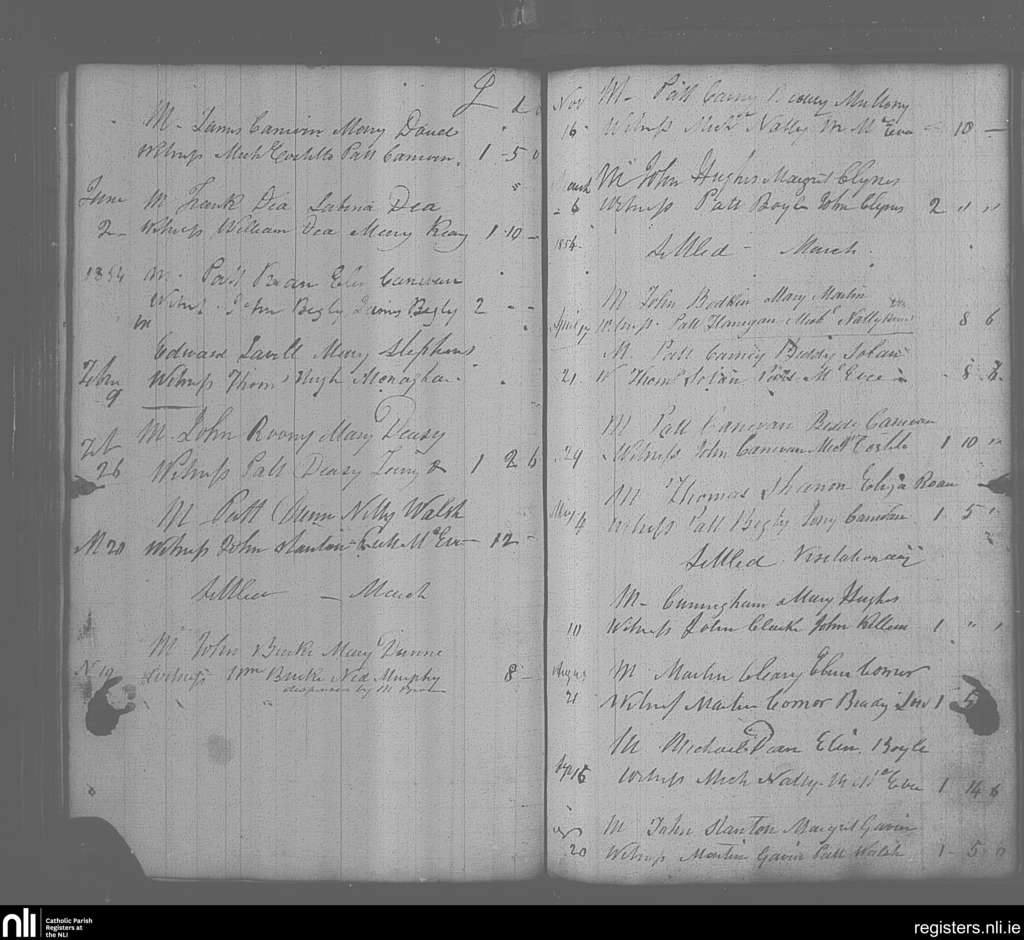 £
M - James Canivin Mary Daud
Witness Mich Costillo Patt Canivin 1 - 5 0
June M Frank Dea Sabina Dea
2 - Witness William Dea Mary Keary 1 - 10 -
1854 M. Patt Ruan Canivan
John Begly Begly 2 - -
M
Edward Lavill Mary Stephens
Witness Thoms Hugh Monaghan
9
M. John Roony Mary Deasy
26 Witness Patt Deasy 1 2 6
M Patt Dunn Nelly Walsh
M 20 Witness John Stanton - 12 -
Settled - March
M John Burke Mary Dunne
N 19 Witness Wm Burke Ned Murphy 8 -
dispense by M
Nov M - Patt Carny Mullony
16 - Witness Michl Nally M McEvee - 10 -
March M John Hughes Margret Clynes
- 6 Witness Patt Boyle John Clynes 2 " "
1854 Settled - March
M John Bodkin Mary Martin
Witness Patt Flanigan Michl Nally 8 6
M. Patt Carney Biddy Solan
21 - W Thoms Solan McEvee - 8
M Patt Canevan Biddy Canevan
29 Witness John Canevan Michl Costilo 1 10 "
M Thomas Shanon Eliza Roan
May 4 Witness Patt Begly Canevan 1 - 5 "
Settled Visitation
M - Cuningham Mary Hughes
10 Witness John Clarke John Killeen 1 " "
August M Martin Cleary Elenr Connor
21 Witness Martin Connor Brady 1 5
M Michael Dean Elin Boyle
16 Witness Mich Nally M McEvee 1 - 14 6
M John Stanton Margret Gavin
20 Witness Martin Gavin Patt Walsh 1 - 5 0
nli Catholic Parish
Registers at
the NLI
registers.nli.ie